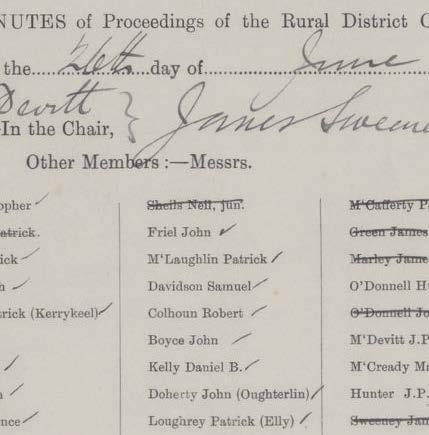 NUTES of Proceedings of the Rural District C
the 26th day of June
Devitt
In the Chair, James Sweene
Other Members :—Messrs.
opher
atrick.
rick
h
trick (Kerrykeel)
n
nce
Sheils Neil, jun.
Friel John
M'Laughlin Patrick
Davidson Samuel
Colhoun Robert
Boyce John
Kelly Daniel B.
Doherty John (Oughterlin)
Loughrey Patrick (Elly)
M'Cafferty P
Green James
Marley Jame
O'Donnell H
O'Donnell Jo
M'Devitt J.P
M'Cready Ma
Hunter J.P.
Sweeney Jam